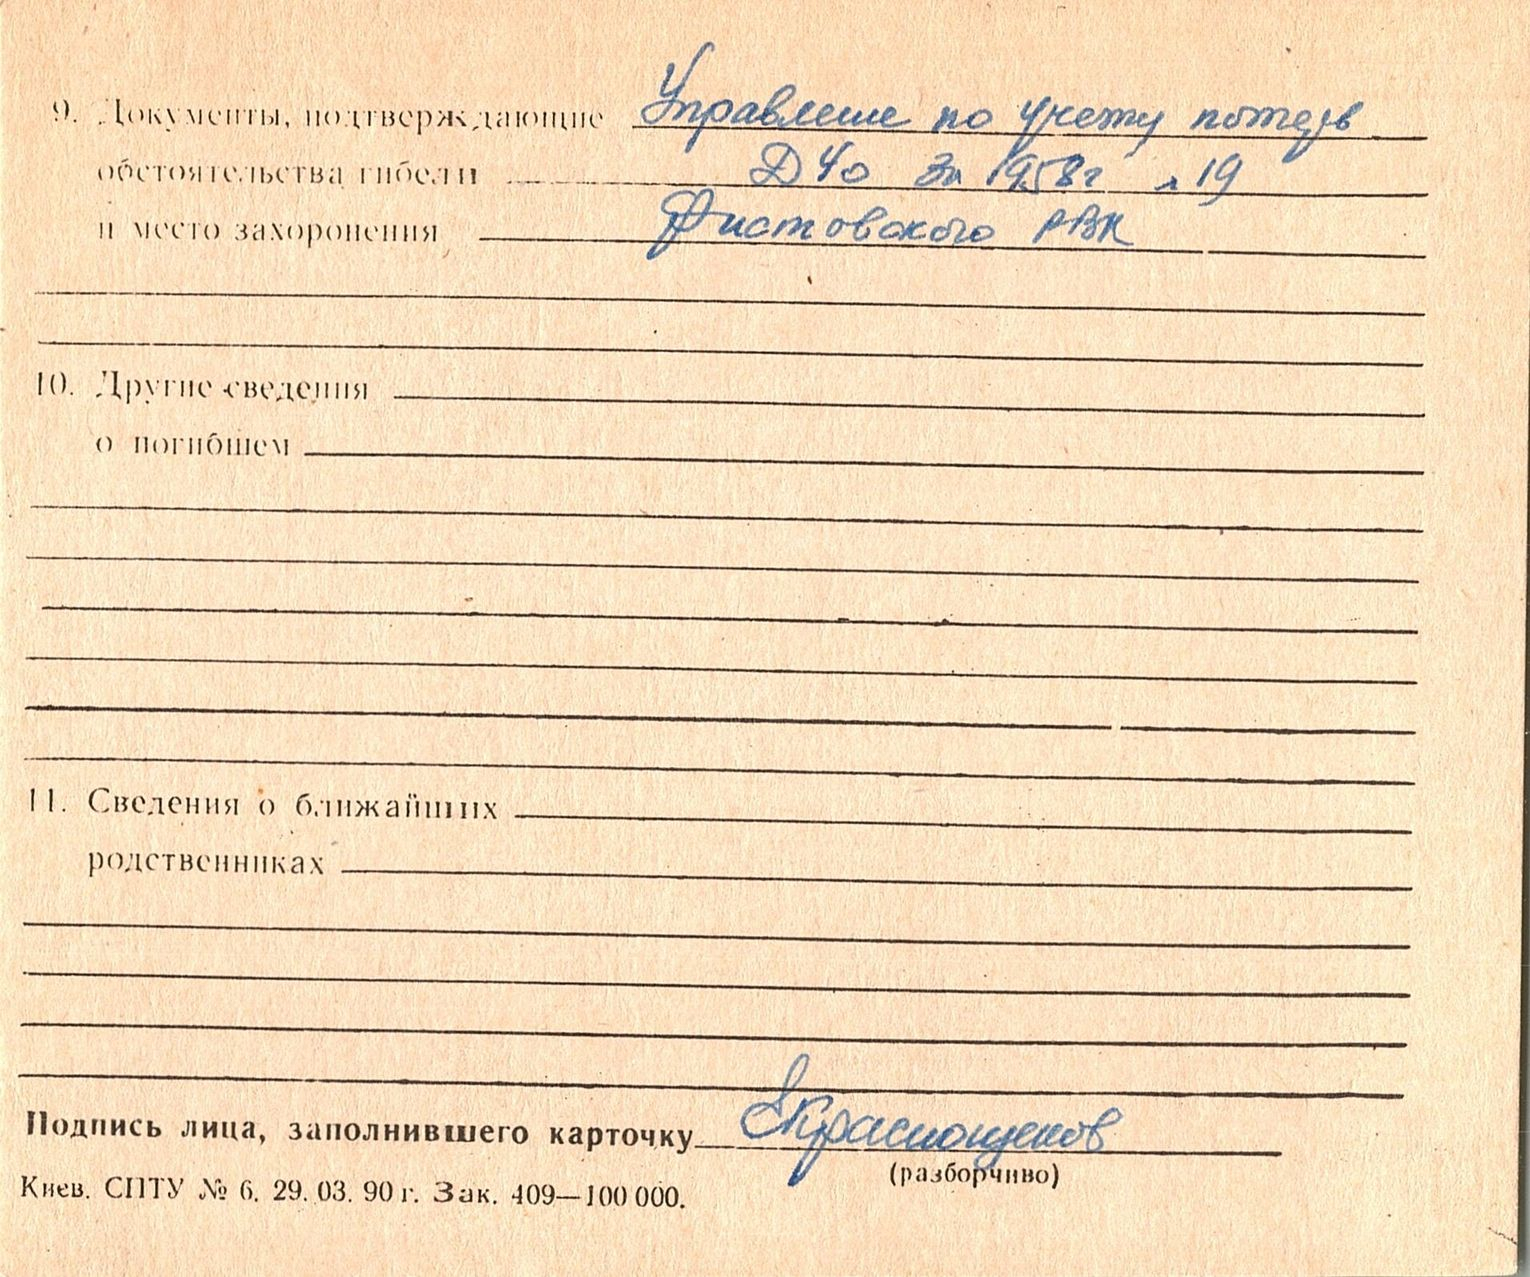 9. Документы, подтверждающие Управление по учету потерь
обстоятельства гибели Д 40 за 1958г л 19
и место захоронения Фастовского РВК
10. Другие сведения
о погибшем
11. Сведения о ближайших
родственниках
Подпись лица, заполнившего карточку Краснощеков
(разборчиво)
Киев. СПТУ № 6. 29. 03. 90 г. Зак. 409—100 000.